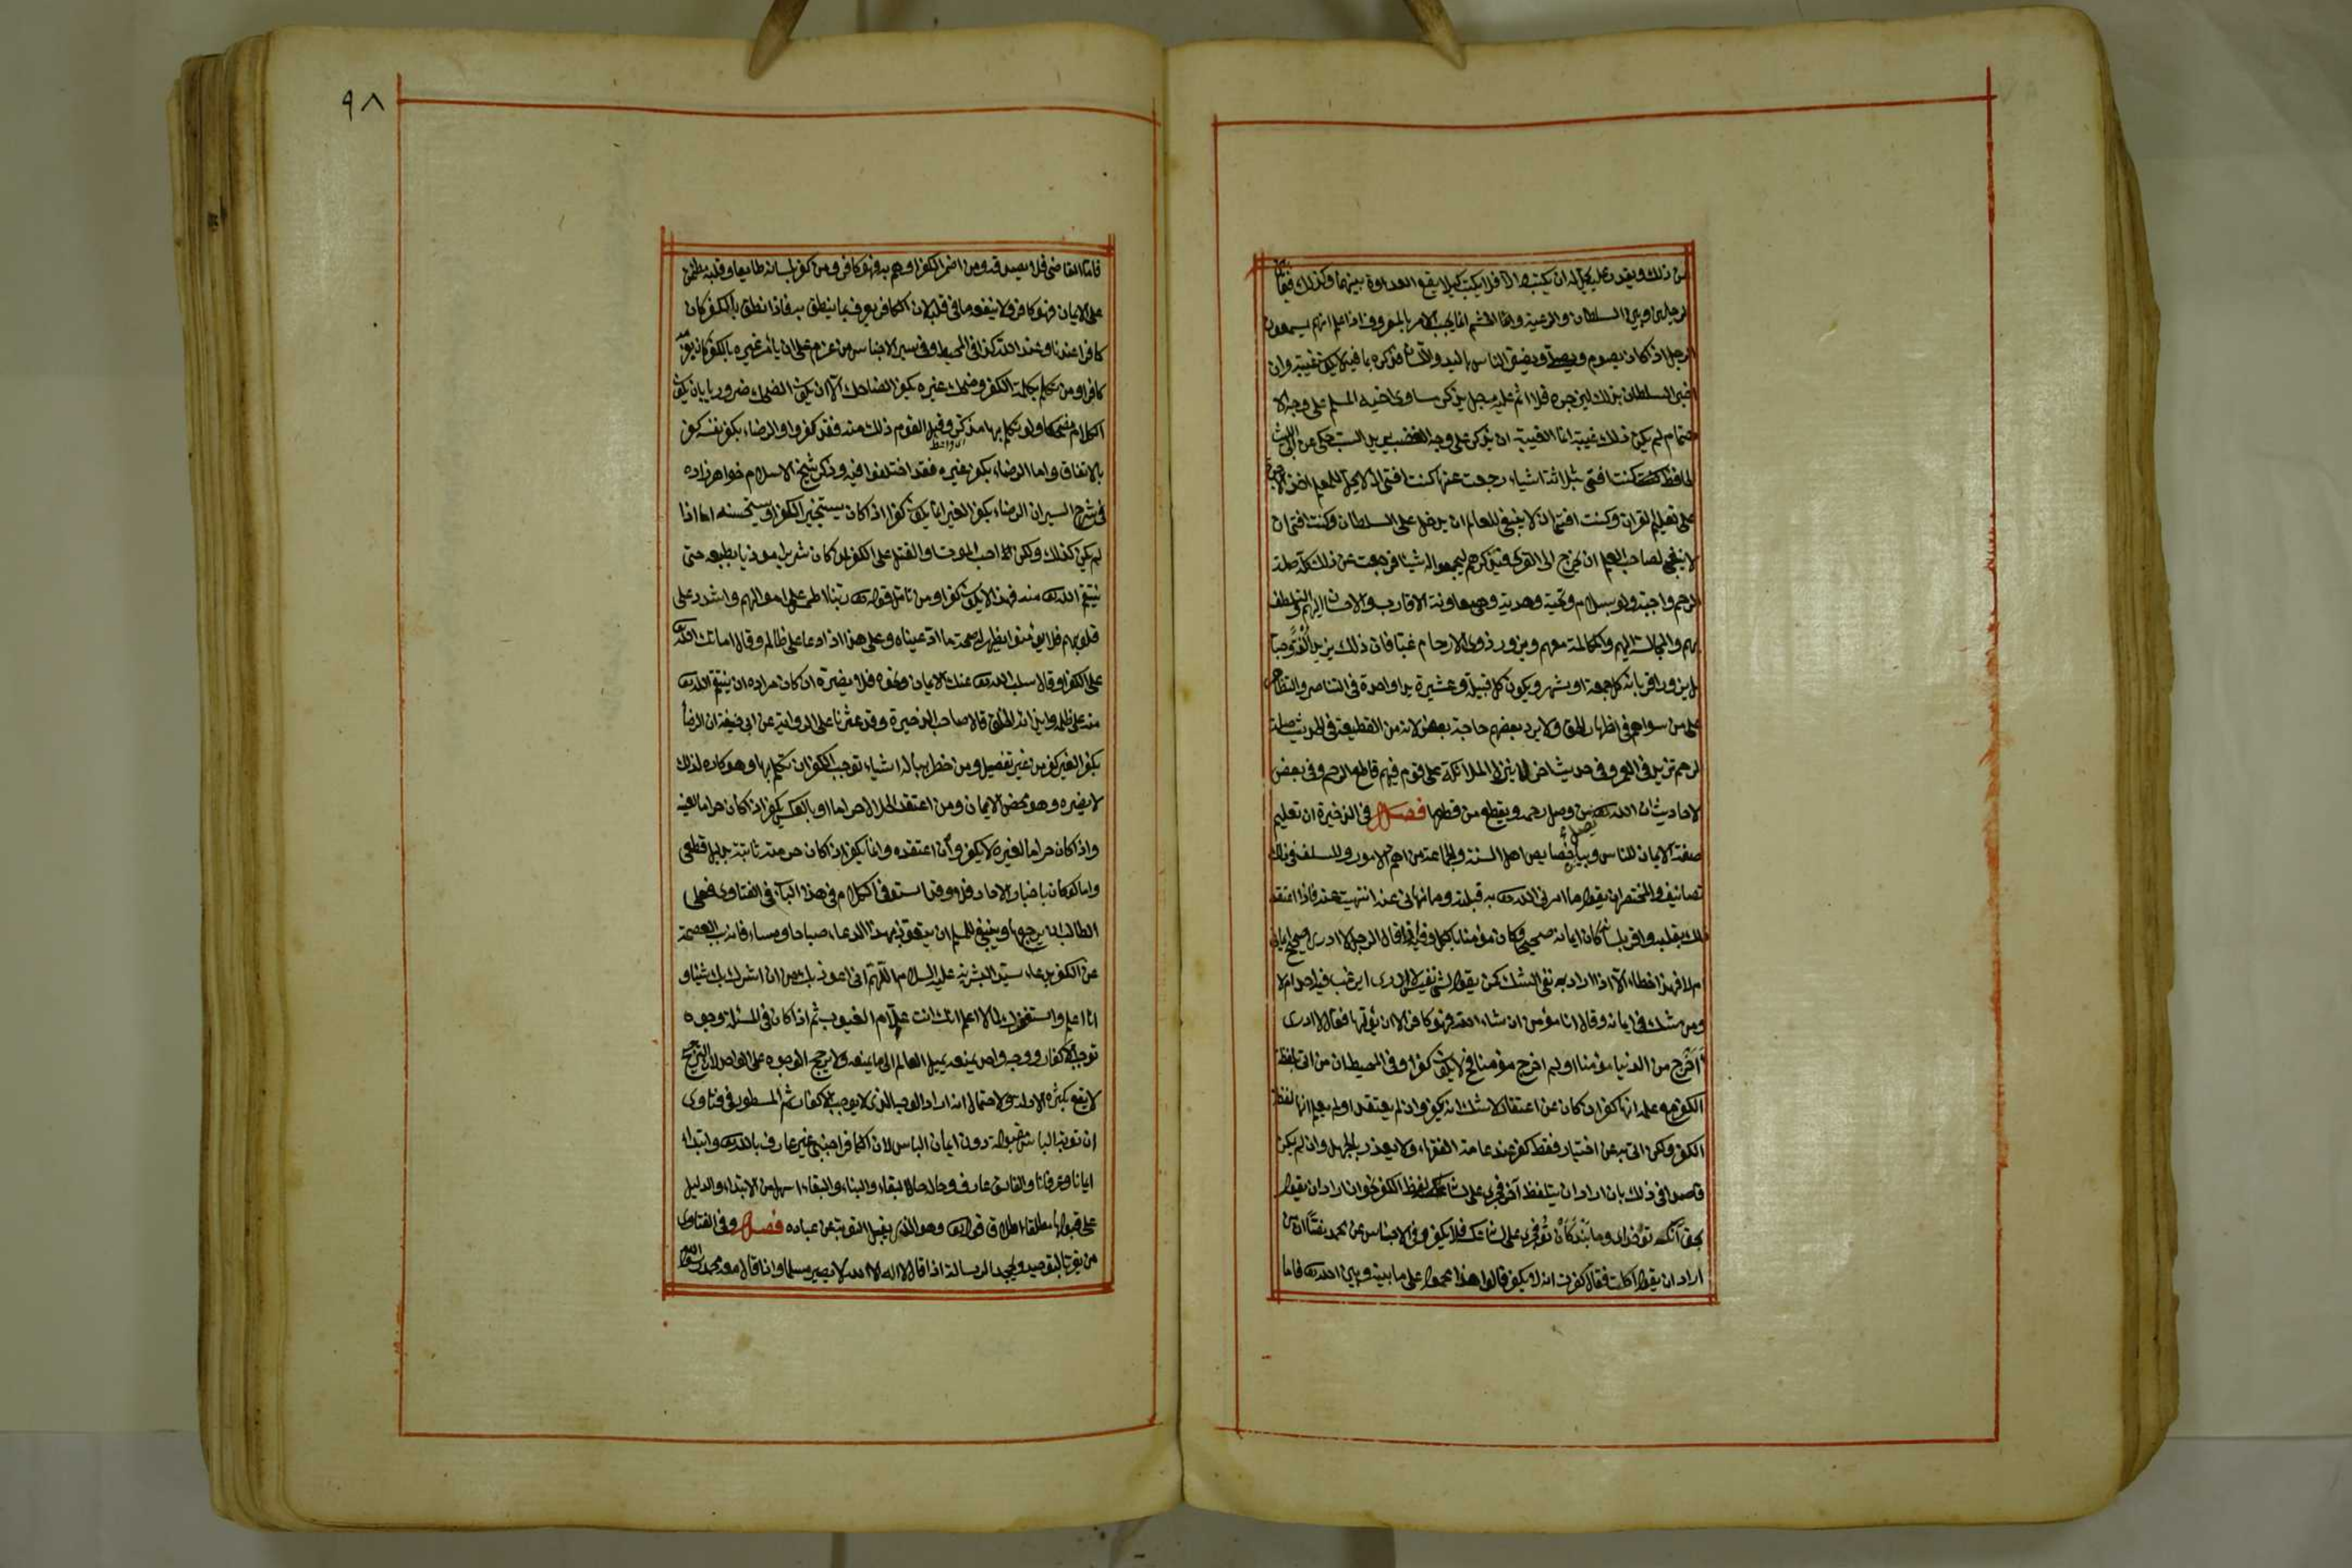 من ذلك ويقدر عليه يحل له ان يكتب والا فلا يكتب كيلا يقع العداوة بينهما وكذلك فيما
الرجلين وبين السلطان والرعية والحشم انما يجب الامر بالمعروف اذا علم انهم يسمعون
الرجل اذا كان يصوم ويصلي ويضر الناس باليد واللسان فذكره بما فيه لا يكون غيبة وان
اخبر السلطان بذلك ليزجره فلا اثم عليه رجل يذكر مساوي اخيه المسلم على وجه الا
هتمام لم يكن ذلك غيبة انما الغيبة ان يذكر على وجه الغضب يريد السب حكي عن ابي الليث
الحافظ كنت افتي بثلاثة اشياء رجعت عنها كنت افتي ان لا يحل للمعلم اخذ الاجرة
على تعليم القران وكنت افتي ان لا ينبغي للعالم ان يدخل على السلطان وكنت افتي ان
لا ينبغي لصاحب العلم ان يخرج الى القرى فيذكرهم ليجمعوا له شيئا فرجعت عن ذلك كله صلة
الرحم واجبة ولو بسلام وتحية وهدية وهي معاونة الاقارب والاحسان اليهم والتلطف
بهم والمجالسة اليهم والمكالمة معهم ويزور ذوي الارحام غبا فان ذلك يزيد الفة وحبا
بل يزور اقرباءه كل جمعة او شهر ويكون كل قبيلة وعشيرة يدا واحدة في التناصر والتظاهر
على من سواهم في اظهار الحق ولا يرد بعضهم حاجة بعض لانه من القطيعة في الحديث صلة
الرحم تزيد في العمر وفي حديث اخر لا ينزل الملائكة على قوم فيهم قاطع الرحم وفي بعض
الاحاديث ان الله يصل من وصل رحمه ويقطع من قطعها فصل في الذخيرة ان تعليم
صفة الايمان للناس وبيان خصايص اهل السنة والجماعة من اهم الامور وللسلف في ذلك
تصانيف والمختصر ان يقول ما امرني الله تعالى به قبلته وما نهاني عنه انتهيت عنه فاذا اعتقد
ذلك بقلبه واقر بلسانه كان ايمانه صحيحا وكان مؤمنا بالكل وفيها اذا قال الرجل لا ادري اصحيح ايماني
ام لا فهذا خطاء الا اذا اراد به نفي الشك كمن يقول لشيء نفيس لا ادري ايرغب فيه احد ام لا
ومن شك في ايمانه وقال انا مؤمن ان شاء الله فهو كافر الا ان يؤولها فقال لا ادري
اخرج من الدنيا مؤمنا اولم اخرج مؤمنا فح لا يكون كفرا وفي المحيط ان من اتى بلفظة
الكفر مع علمه انها كفر ان كان عن اعتقاد لا شك انه يكفر وان لم يعتقد او لم يعلم انها لفظة
الكفر ولكن اتى به عن اختيار فقط كفر عند عامة الفقهاء ولا يعذر بالجهل وان لم يكن
قاصدا في ذلك بان اراد ان يتلفظ آخر فجرى على لسانه لفظ الكفر نحو ان اراد ان يقول
بحق آنكه تو خداي وما بندكان تو فجرى على لسانه عكسه فلا يكفر وفي الاجناس عن محمد نصا ان من
اراد ان يقول اكلت فقال كفرت انه لا يكفر قالوا هذا محمول على ما بينه وبين الله تعالى فاما
٩٨
فاما القاضي فلا يصدقه ومن اضمر الكفر او هم به فهو كافر ومن كفر بلسانه طايعا وقلبه مطمئن
على الايمان فهو كافر ولا ينفعه ما في قلبه لان الكافر يعرف بما ينطق به فاذا نطق بالكفر كان
كافرا عندنا وعند الله كذا في المحيط وفي سير الاجناس من عزم على ان يأمر غيره بالكفر كان بعزمه
كافرا ومن تكلم بكلمة الكفر وضحك غيره يكفر الضاحك الا ان يكون الضحك ضروريا بان يكون
الكلام مضحكا ولو تكلم بها مذكر وقبل القوم ذلك منه فقد كفروا والرضاء بكفر نفسه كفر
بالاتفاق واما الرضاء بكفر غيره فقد اختلفوا فيه وذكر شيخ الاسلام خواهرزاده
في شرح السير ان الرضاء بكفر الغير انما يكون كفرا اذا كان يستجيز الكفر او يستحسنه اما اذا
لم يكن كذلك ولكن احب الموت او القتل على الكفر لمن كان شريرا موذيا بطبعه حتى
ينتقم الله منه فهذا لا يكون كفرا ومن تامل قوله تعالى ربنا اطمس على اموالهم واشدد على
قلوبهم فلا يؤمنوا يظهر له صحة ما ادعيناه وعلى هذا اذا دعا على ظالم وقال اماتك الله
على الكفر او قال سلب الله عنك الايمان ونحوه فلا يضره ان كان مراده ان ينتقم الله
منه على ظلمه وايذائه الخلق قال صاحب الذخيرة وقد عثرنا على الرواية عن ابي حنيفة ان الرضا
بكفر الغير كفر من غير تفصيل ومن خطر بباله اشياء توجب الكفر ان تكلم بها وهو كاره لذلك
لا يضره وهو محض الايمان ومن اعتقد الحلال حراما او بالعكس يكفر اذا كان حراما لعينه
واذا كان حراما لغيره لا يكفر وان اعتقده وانما يكفر اذا كان حرمته ثابتة بدليل قطعي
واما لو كان باخبار الاحاد فلا وقد استوفى الكلام في هذا الباب في الفتاوى فعلى
الطالب ان يرجع وينبغي للمسلم ان يتعوذ بهذا الدعاء صباحا ومساء فانه سبب العصمة
عن الكفر بدعاء سيد البشر عليه السلام اللهم اني اعوذ بك من ان اشرك بك شيئا و
انا اعلم واستغفرك لما لا اعلم انك انت علام الغيوب ثم اذا كان في المسئلة وجوه
توجب الاكفار ووجه واحد يمنعه يميل العالم الى ما يمنعه ولا يرجح الوجوه على الواحد لان الترجيح
لا يقع بكثرة الادلة ولاحتمال انه اراد الوجه الذي لا يوجب الاكفار ثم المسطور في فتاوى
ان توبة الباس مقبولة دون ايمان الباس لان الكافر اجنبي غير عارف بالله وابتداء
ايمانا وعرفانا والفاسق عارف وحاله حال البقاء والبناء والبقاء اسهل من الابتداء والدليل
على قبولها مطلقا اطلاق قوله تعالى وهو الذي يقبل التوبة عن عباده فصل وفي الفتاوى
من يقر بالتوحيد ويجحد الرسالة اذا قال لا اله الا الله لا يصير مسلما واذا قال معه محمد رسول الله